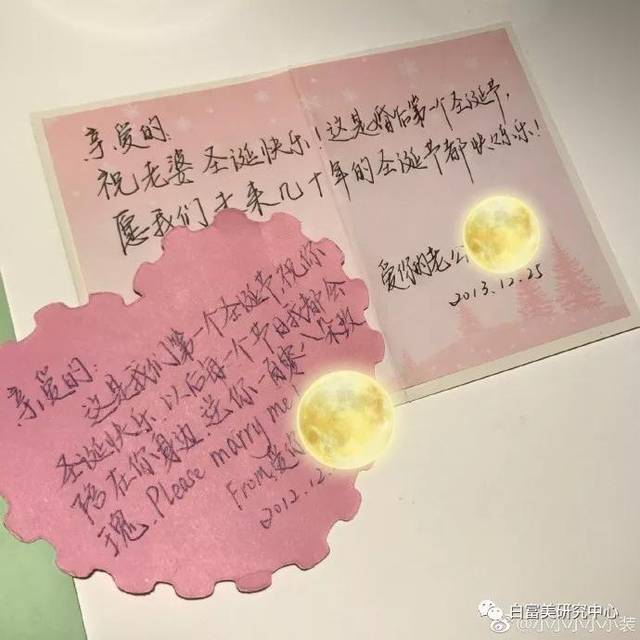 亲爱的:
祝老婆圣诞快乐!这是婚后第一个圣诞节,
愿我们未来几十年的圣诞节都快乐乐!
爱你的老公
2013.12.25
亲爱的:
这是我们第一个圣诞节祝你
圣诞快乐 以后每一个节日我都会
陪在你身边 送你一百零八朵玫
瑰.Please marry me
From爱你
2012.12.
白富美研究中心